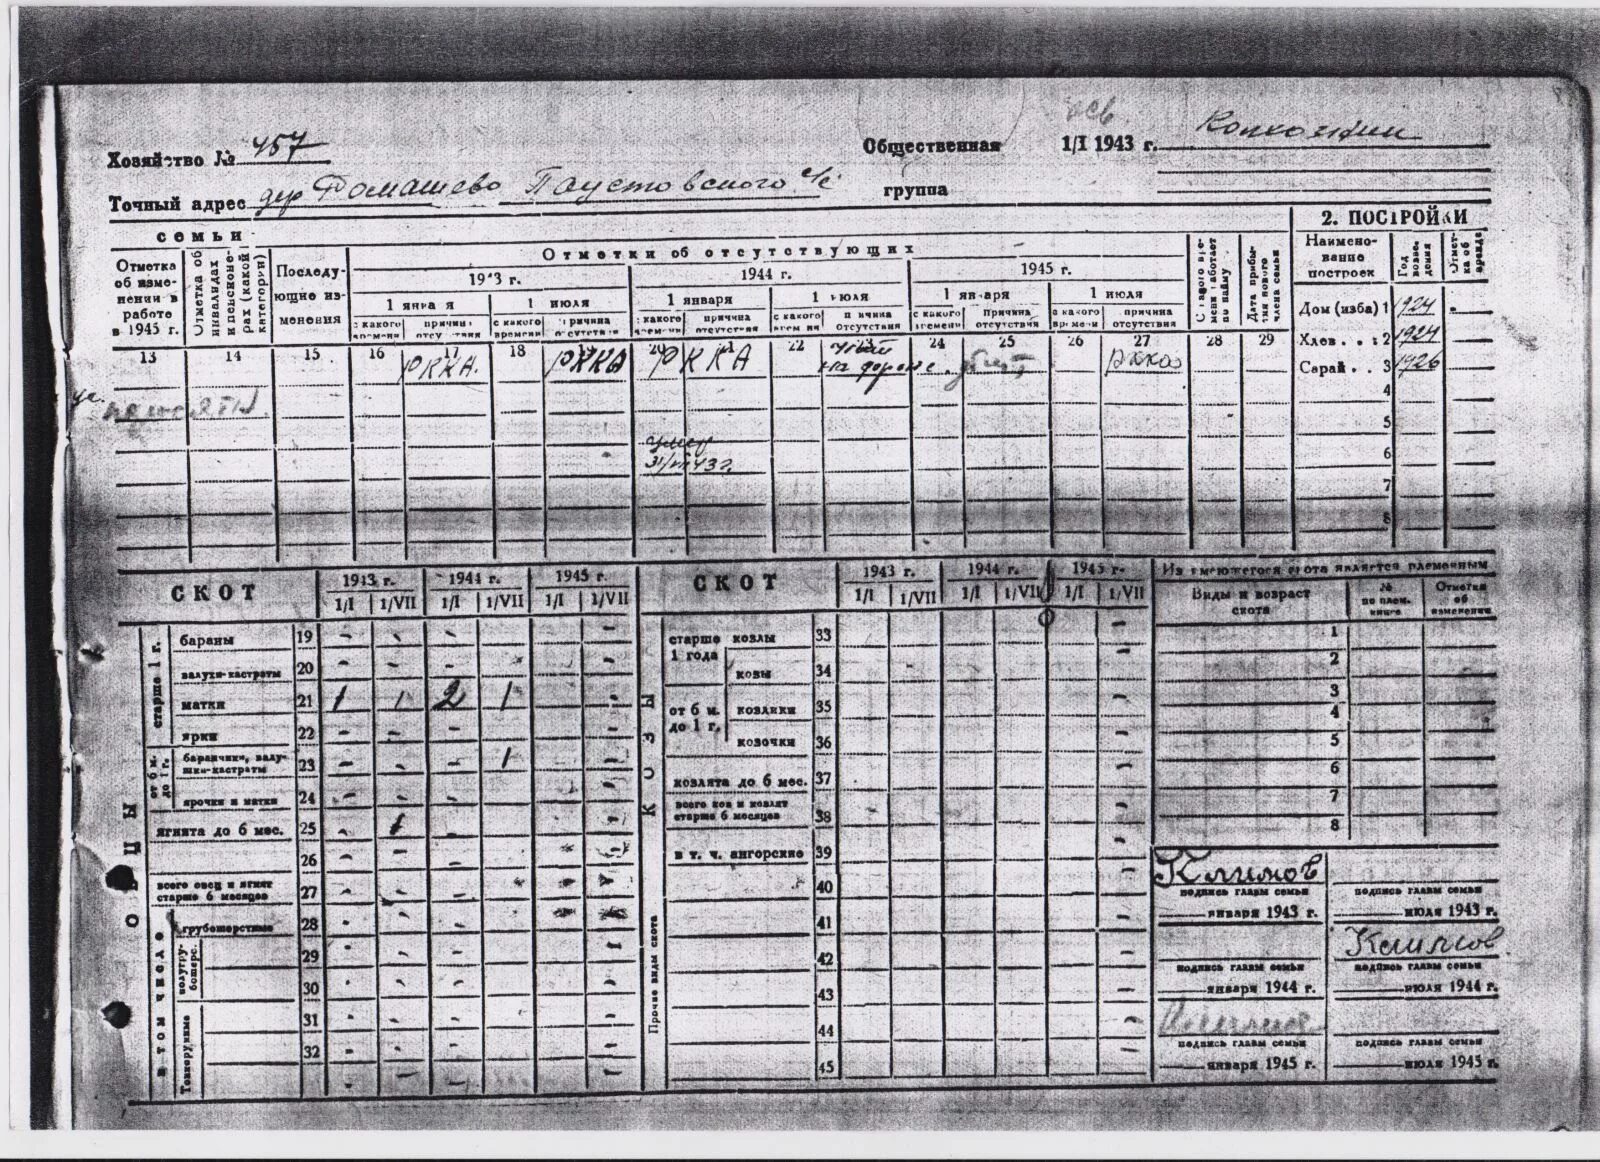 Хозяйство № 457
Общественная 1/I 1943 г.
Точный адрес дер Ромашево Паустовского с/с
группа
семьи
Отметка об изменении в работе в 1945 г.
Отметка об инвалидах и пенсионерах (какой категории)
Последующие изменения
Отметки об отсутствующих
1943 г. 1944 г. 1945 г.
1 января 1 июля 1 января 1 июля 1 января 1 июля
с какого времени причина отсутствия с какого времени причина отсутствия с какого времени причина отсутствия с какого времени причина отсутствия с какого времени причина отсутствия с какого времени причина отсутствия
С какого времени работает по найму
Дата прибытия нового члена семьи
13 14 15 16 17 18 19 20 21 22 23 24 25 26 27 28 29
РККА. РККА РККА убит РККА
умер
2. ПОСТРОЙКИ
Наименование построек
Год возведения
Дом (изба) 1 1924
Хлев . . : 2 1924
Сарай . . 3 1926
4
5
6
7
8
СКОТ 1943 г. 1944 г. 1945 г.
1/I 1/VII 1/I 1/VII 1/I 1/VII
ОВЦЫ
старше 1 г.
бараны 19 - - - - -
валухи-кастраты 20 - - - - -
матки 21 1 1 2 1 -
ярки 22 - - - -
от 6 м. до 1 г.
баранчики, валушки-кастраты 23 - - - 1 -
ярочки и матки 24 - - - -
ягнята до 6 мес. 25 - 1 - -
26
всего овец и ягнят старше 6 месяцев 27
в том числе
грубошерстные 28
полугрубошерс.
29
30
Тонкорунные
31
32
СКОТ 1943 г. 1944 г. 1945 г.
1/I 1/VII 1/I 1/VII 1/I 1/VII
КОЗЫ
старше 1 года
козлы 33
козы 34
от 6 м. до 1 г.
козлики 35
козочки 36
козлята до 6 мес. 37
всего коз и козлят старше 6 месяцев 38
в т. ч. ангорские 39
Прочие виды скота
40
41
42
43
44
45
Из имеющегося скота является племенным
Виды и возраст скота
№ по плем. книге
Отметка об изменении
1
2
3
4
5
6
7
8
Климов
подпись главы семьи подпись главы семьи
января 1943 г. июля 1943 г.
Климов
подпись главы семьи подпись главы семьи
января 1944 г. июля 1944 г.
подпись главы семьи подпись главы семьи
января 1945 г. июля 1945 г.